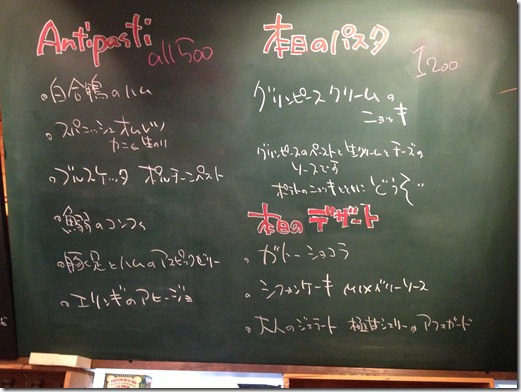 Antipasti
all 500
。白合鴨のハム
。スパニッシュオムレツ
カニと生のり
。ブルスケッタ ポルチーニペースト
。のコンフィ
。豚足とハムのアスピックゼリー
。エリンギのアヒージョ
本日のパスタ
1200
グリンピースクリームの
ニョッキ
グリンピースのペーストと生クリームとチーズの
ソースです
ポテトのニョッキとともにどうぞ
本日のデザート
。ガトーショコラ
。シフォンケーキ MIXベリーソース
。大人のジェラート 極甘シェリーのアフォガード